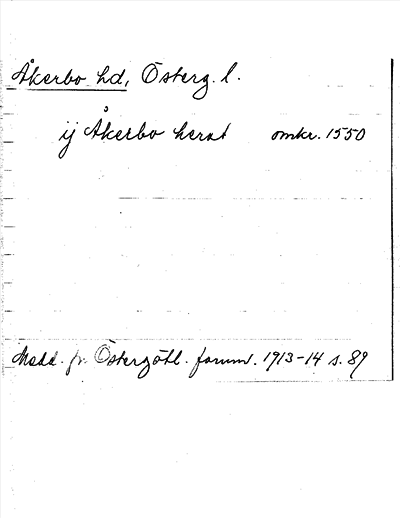 Åkerbo hd, Österg. l.
ij Åkerbo herat omkr. 1550
Medd. fr. Östergötl. fornm. 1913-14 s. 89